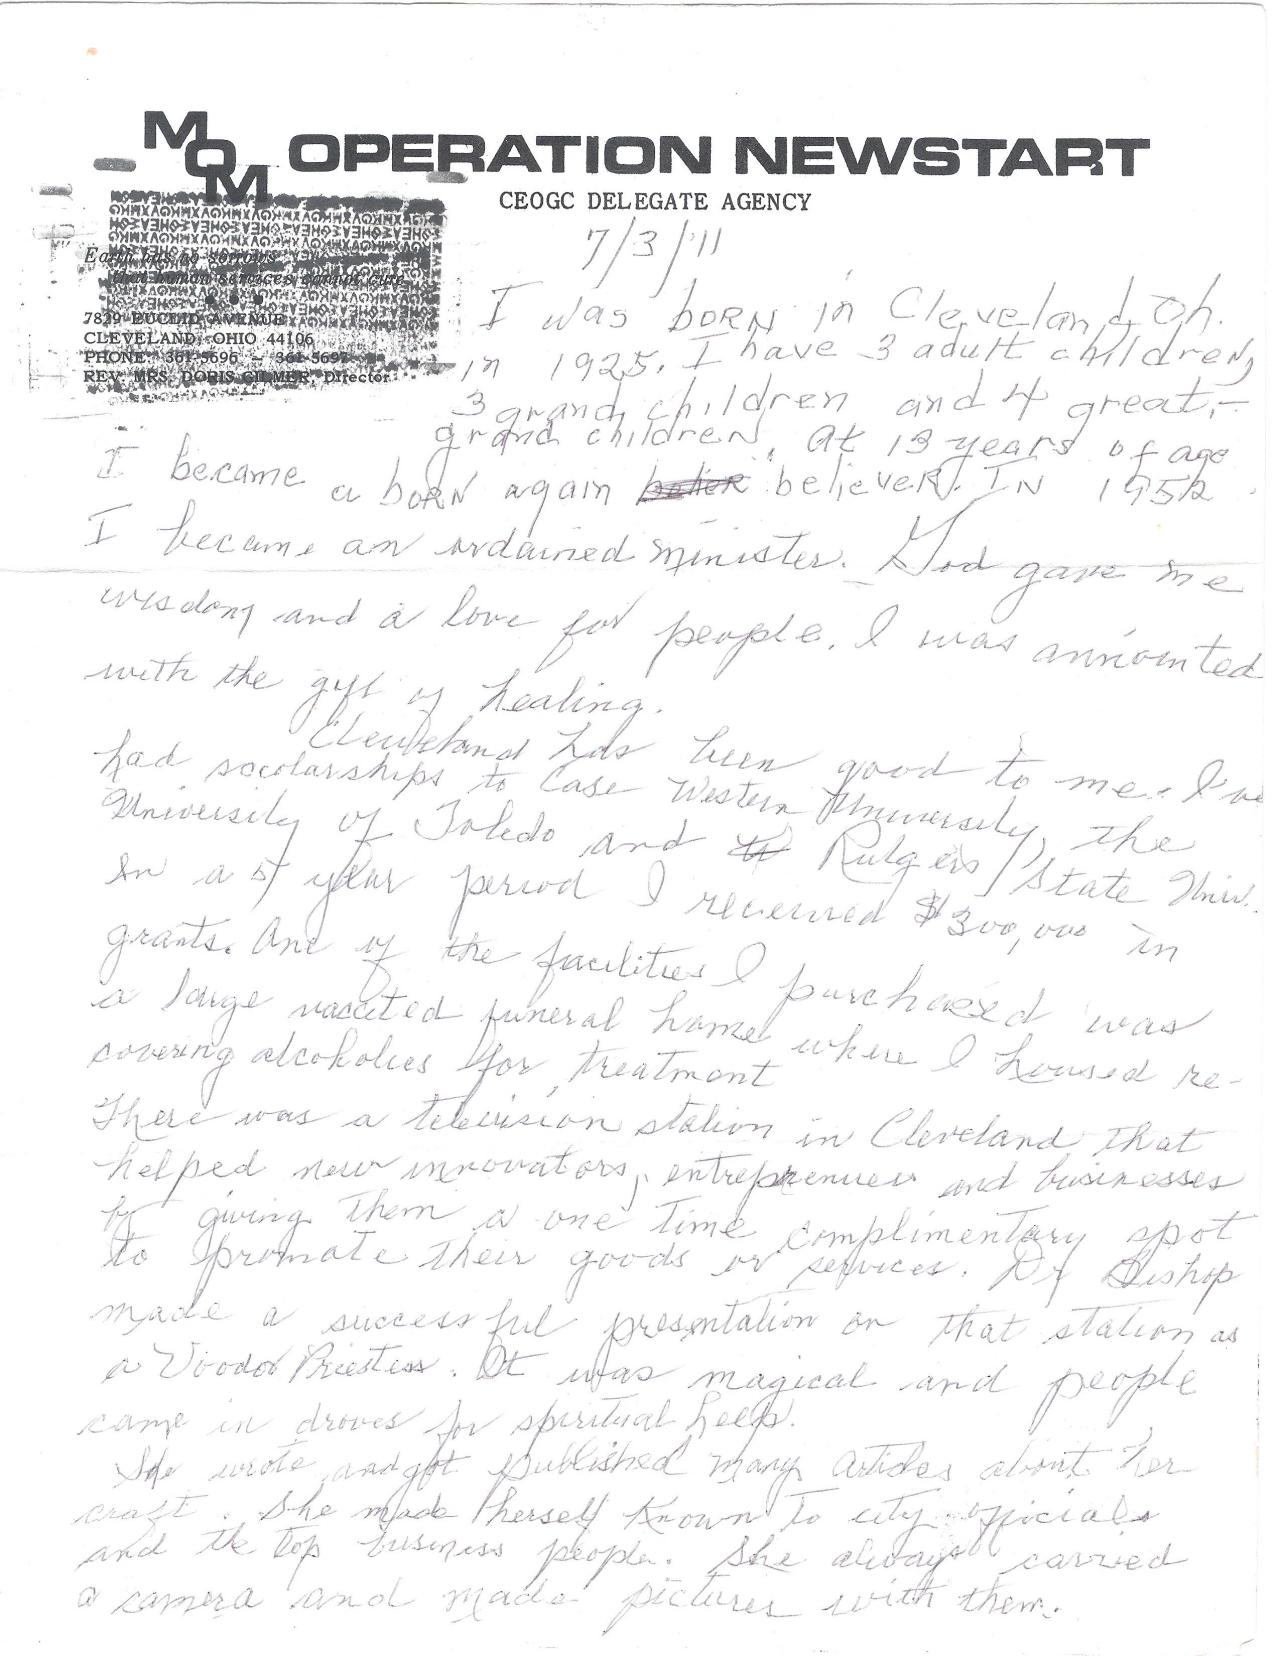 MOM OPERATION NEWSTART
CEOGC DELEGATE AGENCY
Earth has no sorrows
that human services cannot cure
7829 EUCLID AVENUE
CLEVELAND, OHIO 44106
PHONE 361-5696 - 361-5697
REV. MRS. DORIS GILMER, Director
7/3/'11
I was born in Cleveland, Oh.
in 1925. I have 3 adult children,
3 grand children and 4 great-
grand children. At 13 years of age
I became a born again believer. IN 1952
I became an ordained minister. God gave me
wisdom and a love for people. I was annointed
with the gift of healing.
Cleveland has been good to me. I've
had scolarships to Case Western University, the
University of Toledo and Rutgers State Univ.
In a 5 year period I received $300,000 in
grants. One of the facilities I purchased was
a large vacated funeral home where I housed re-
covering alcoholics for treatment
There was a television station in Cleveland that
helped new innovators, entreprenuers and businesses
by giving them a one time complimentary spot
to promote their goods or services. Dr Bishop
made a successful presentation on that station as
a Voodoo Priestess. It was magical and people
came in droves for spiritual help.
She wrote and got published many articles about her
craft. She made herself known to city officials
and the top business people. She always carried
a camera and made pictures with them.